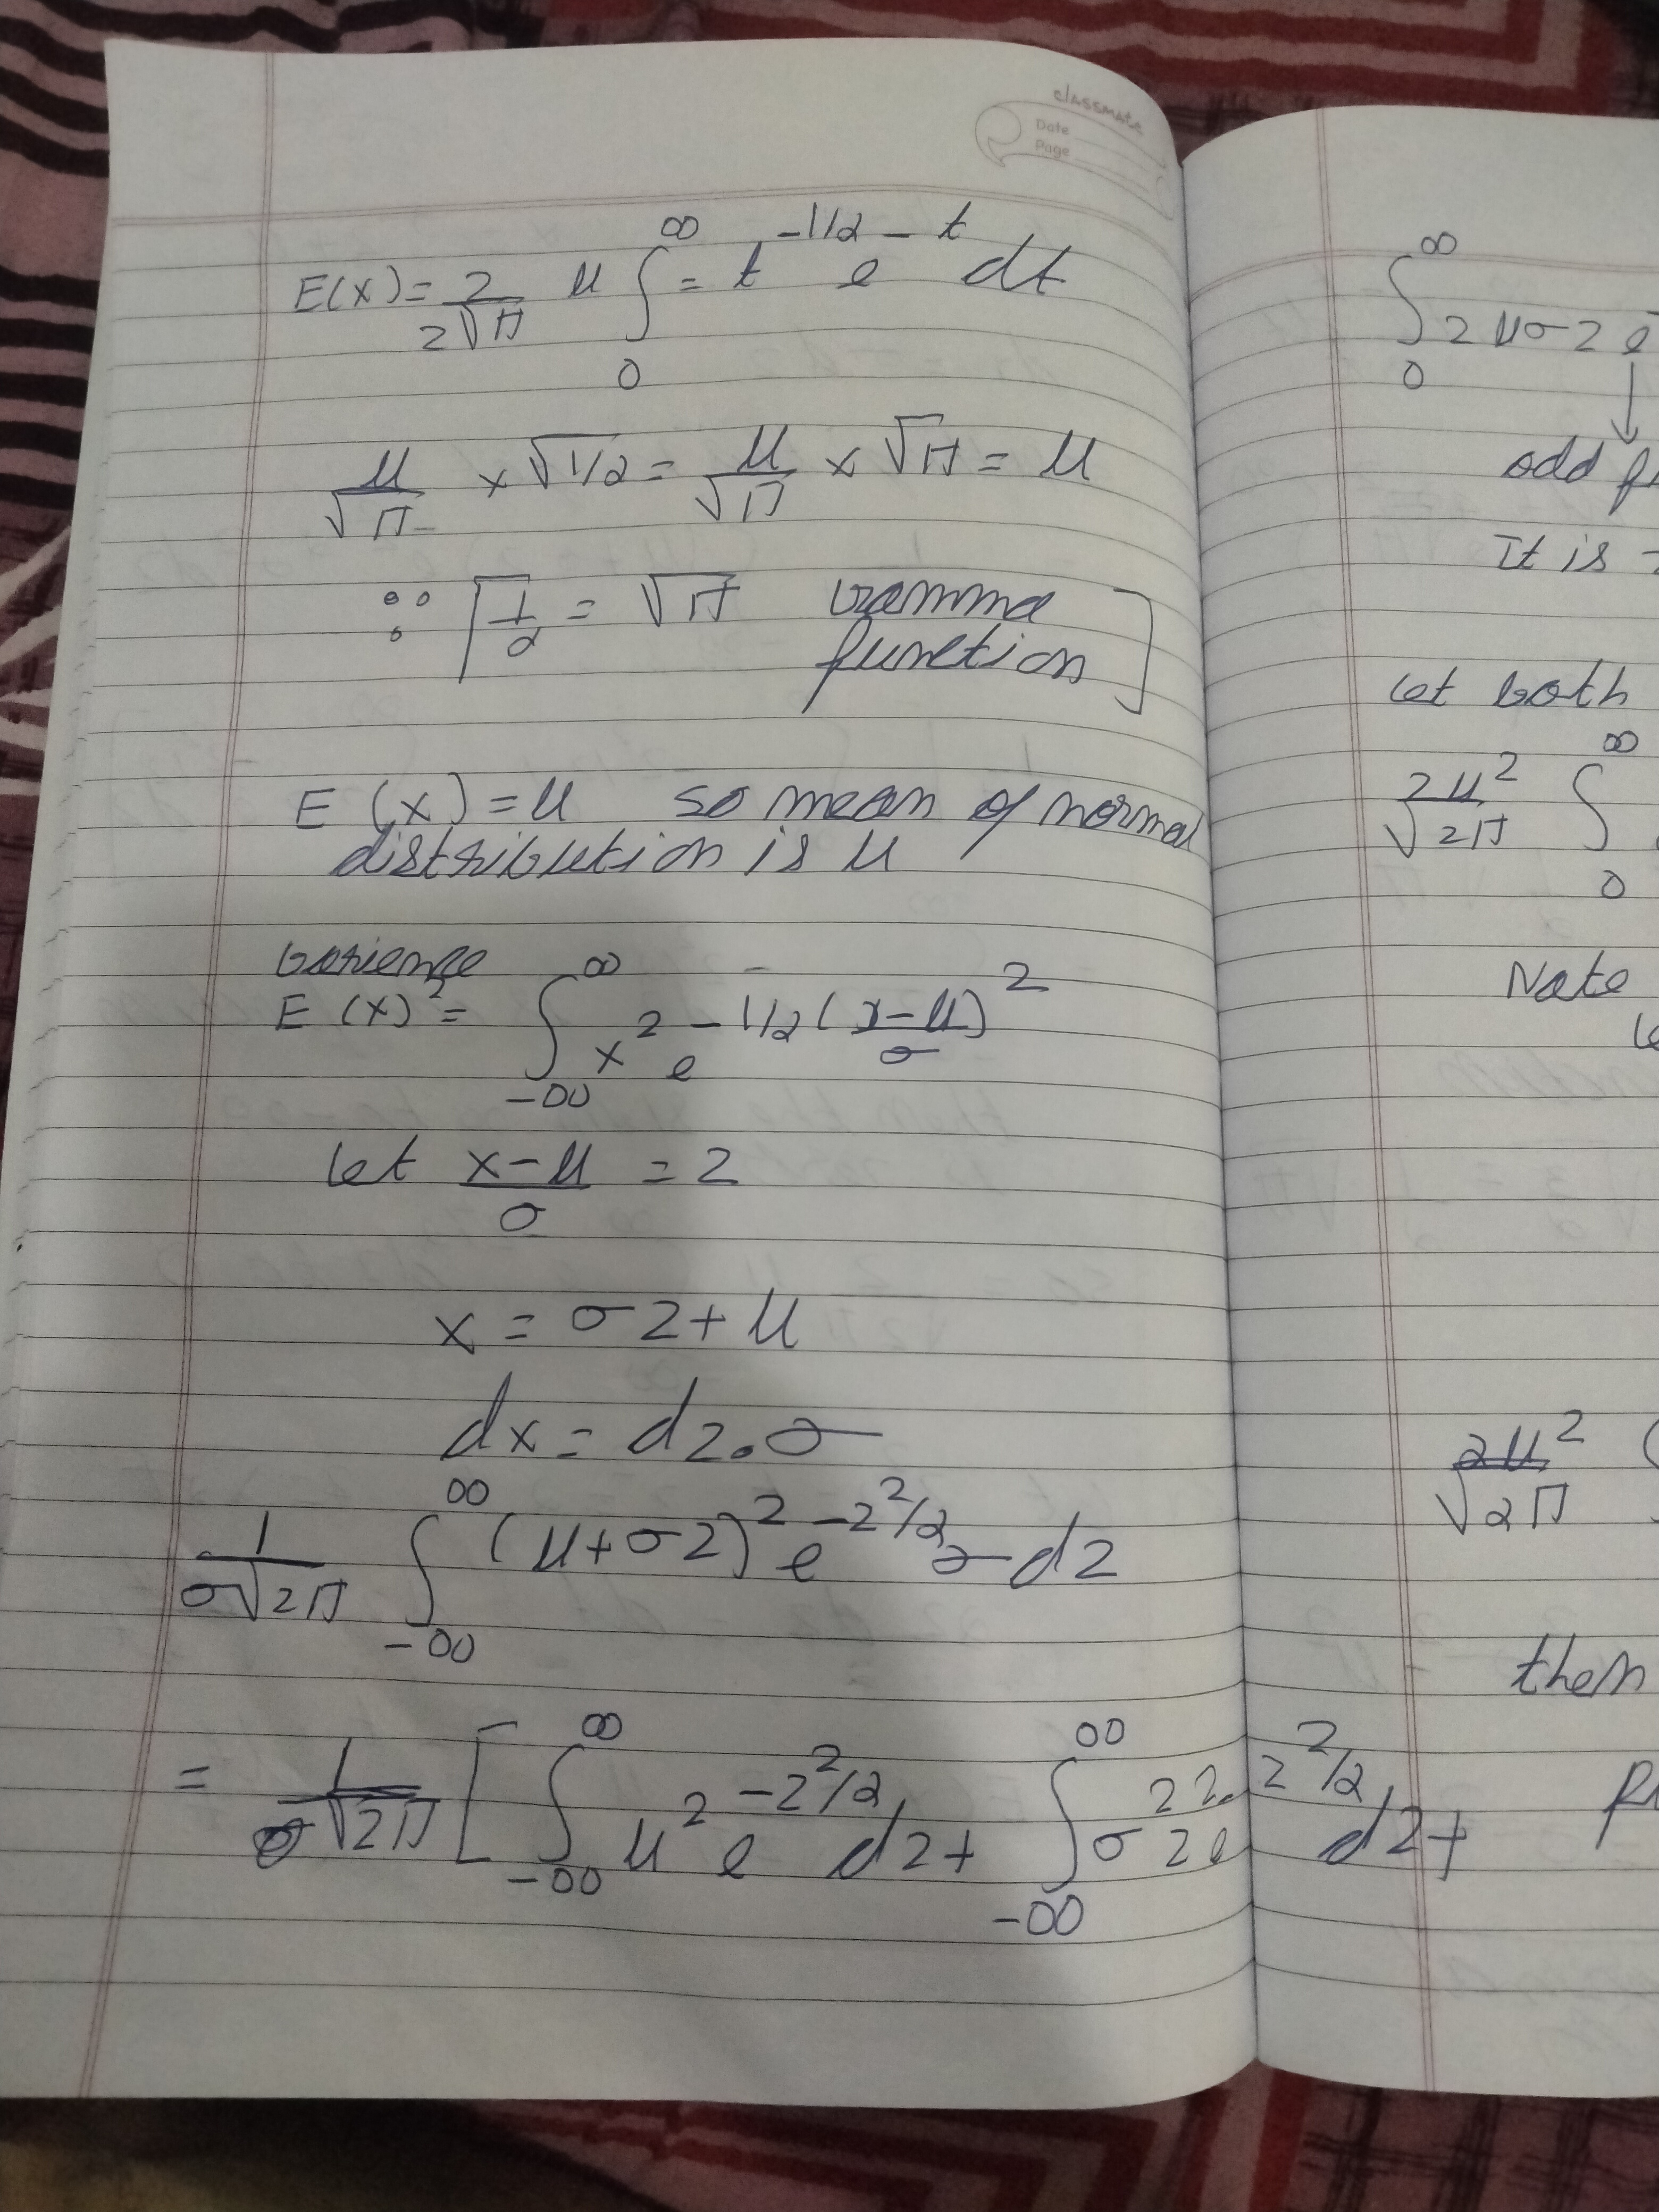 classmate
Date
Page
E(x) = 2/2√π μ ∫₀^∞ = t^(-1/2) e^(-t) dt
μ/√π × √1/2 = μ/√π × √π = μ
∵ Γ1/2 = √π Gamma
function ]
E(x) = μ so mean of normal
distribution is μ
Varience
E(x)² = ∫_{-∞}^{∞} x² e^(-1/2((x-μ)/σ)²)
let (x-μ)/σ = z
x = σz + μ
dx = dz.σ
1/(σ√2π) ∫_{-∞}^{∞} (μ+σz)² e^(-z²/2) σ dz
= 1/√2π [ ∫_{-∞}^{∞} μ² e^(-z²/2) dz + ∫_{-∞}^{∞} σ² z² e^(z²/2) dz +
∫₀^∞ 2μσz e
odd
It is
let both
2μ²/√2π ∫₀^∞
Note
2μ²/√2π
then